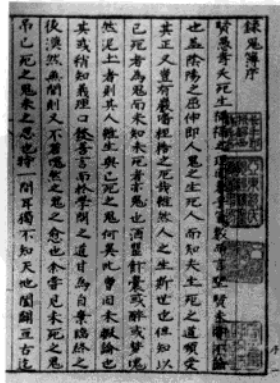 錄鬼簿序
賢愚壽夭死生禍福之理固兼乎氣數而言聖賢未嘗不論
也蓋陰陽之屈伸即人鬼之生死人而知夫生死之道順受
其正又豈有巖墻桎梏之厄哉雖然人之生斯世也但知以
已死者為鬼而未知未死者亦鬼也酒罌飯囊或醉或夢塊
然泥土者則其人雖生與已死之鬼何異此曹固未暇論也
其或稍知義理口發善言而於學問之道甘為自棄臨終之
後漠然無聞則又不若塊然之鬼之愈也余嘗見未死之鬼
吊已死之鬼未之思也特一間耳獨不知天地闔闢亙古迄
序